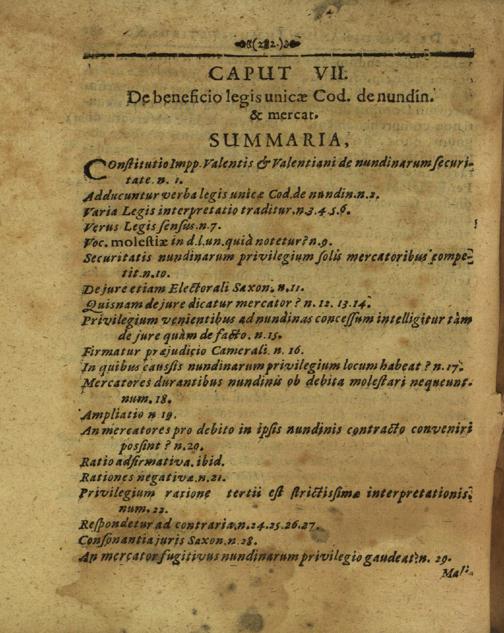 (282.)
CAPUT VII.
De beneficio legis unicæ Cod. de nundin.
& mercat.
SUMMARIA,
COnstitutio Impp. Valentis & Valentiani de nundinarum securi-
tate. n. 1.
Adducuntur verba legis unicæ Cod. de nundin. n. 2.
Varia Legis interpretatio traditur. n. 3. 4. 5. 6.
Verus Legis sensus. n. 7.
Voc. molestiæ in d. l. un. quid notetur? n. 9.
Securitatis nundinarum privilegium solis mercatoribus compe-
tit. n. 10.
De jure etiam Electorali Saxon. n. 11.
Quisnam de jure dicatur mercator? n. 12. 13. 14.
Privilegium venientibus ad nundinas concessum intelligitur tàm
de jure quàm de facto. n. 15.
Firmatur præjudicio Camerali. n. 16.
In quibus caussis nundinarum privilegium locum habeat? n. 17.
Mercatores durantibus nundinis ob debita molestari nequeunt.
num. 18.
Ampliatio n 19.
An mercatores pro debito in ipsis nundinis contracto conveniri
possint? n. 20.
Ratio adfirmativa. ibid.
Rationes negativæ. n. 21.
Privilegium ratione tertii est strictissimæ interpretationis.
num. 22.
Respondetur ad contraria. n. 24. 25. 26. 27.
Consonantia juris Saxon. n 28.
An mercator fugitivus nundinarum privilegio gaudeat? n. 29.